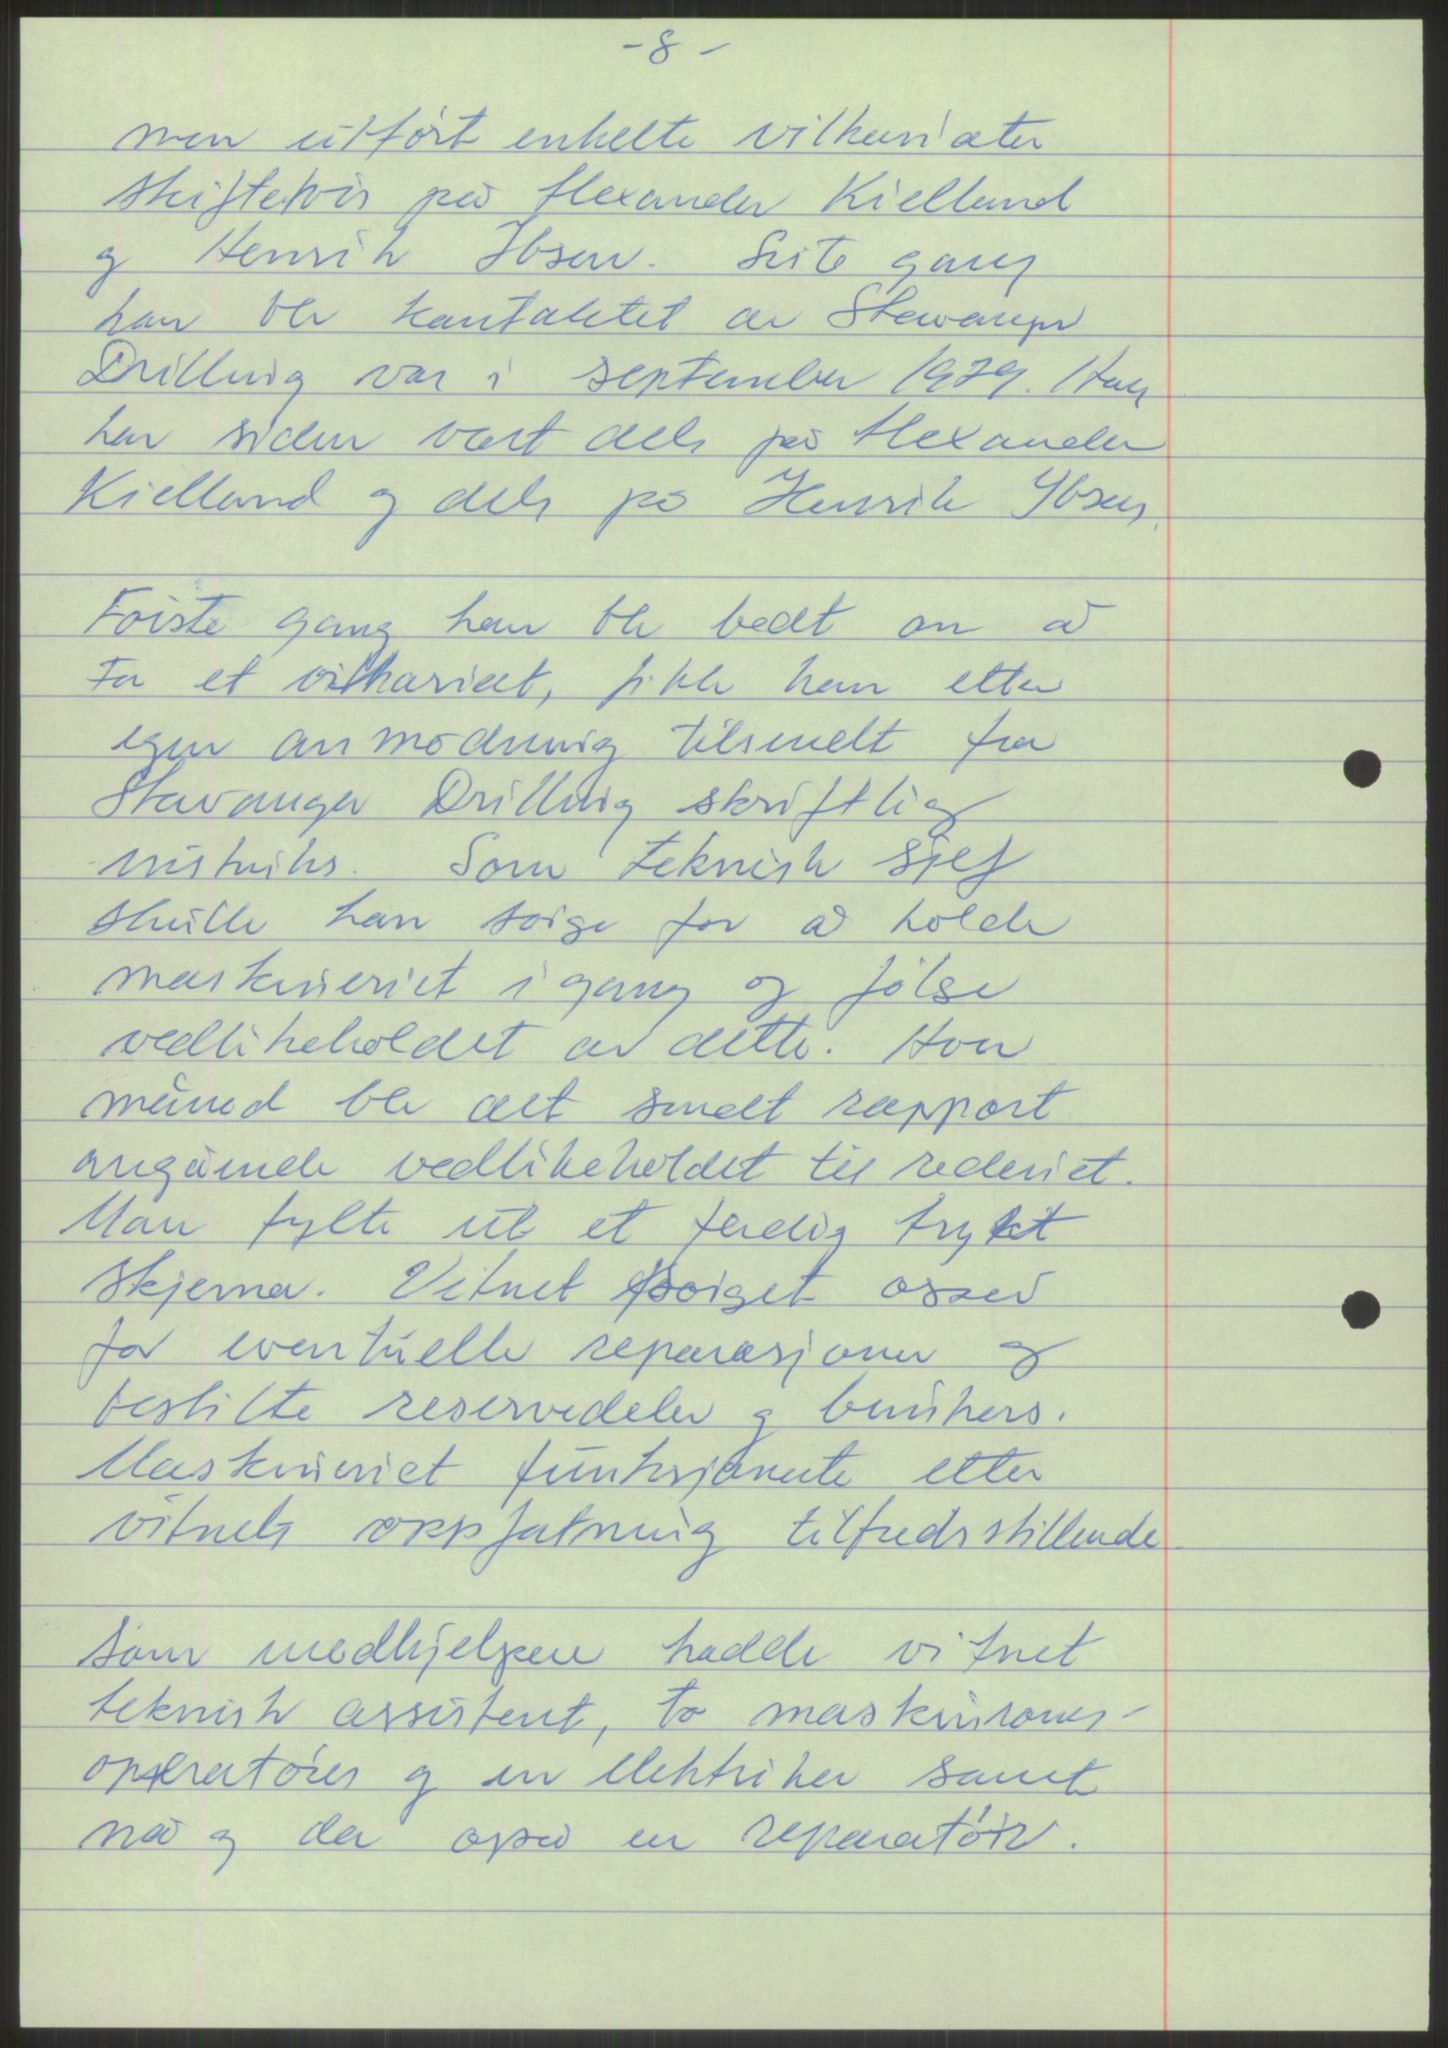 - 8 -
men utført enkelte vikariater
skiftetvis på Alexander Kielland
og Henrik Ibsen. Siste gang
han ble kontaktet av Stavanger
Drilling var i september 1979. Han
har siden vært dels på Alexander
Kielland og dels på Henrik Ibsen.
Første gang han ble bedt om å
ta et vikariat, fikk han etter
egen anmodning tilsendt fra
Stavanger Drilling skriftlig
instruks. Som teknisk sjef
skulle han sørge for å holde
maskineriet i gang og følge
vedlikeholdet av dette. Hver
måned ble det sendt rapport
angående vedlikeholdet til rederiet.
Man fylte ut et ferdig trykt
skjema. Vitnet sørget også
for eventuelle reparasjoner og
bestilte reservedeler og bunkers.
Maskineriet funksjonerte etter
vitnets oppfatning tilfredsstillende
Som medhjelpere hadde vitnet
teknisk assistent, to maskinroms-
operatører og en elektriker samt
nå og da også en reparatør.